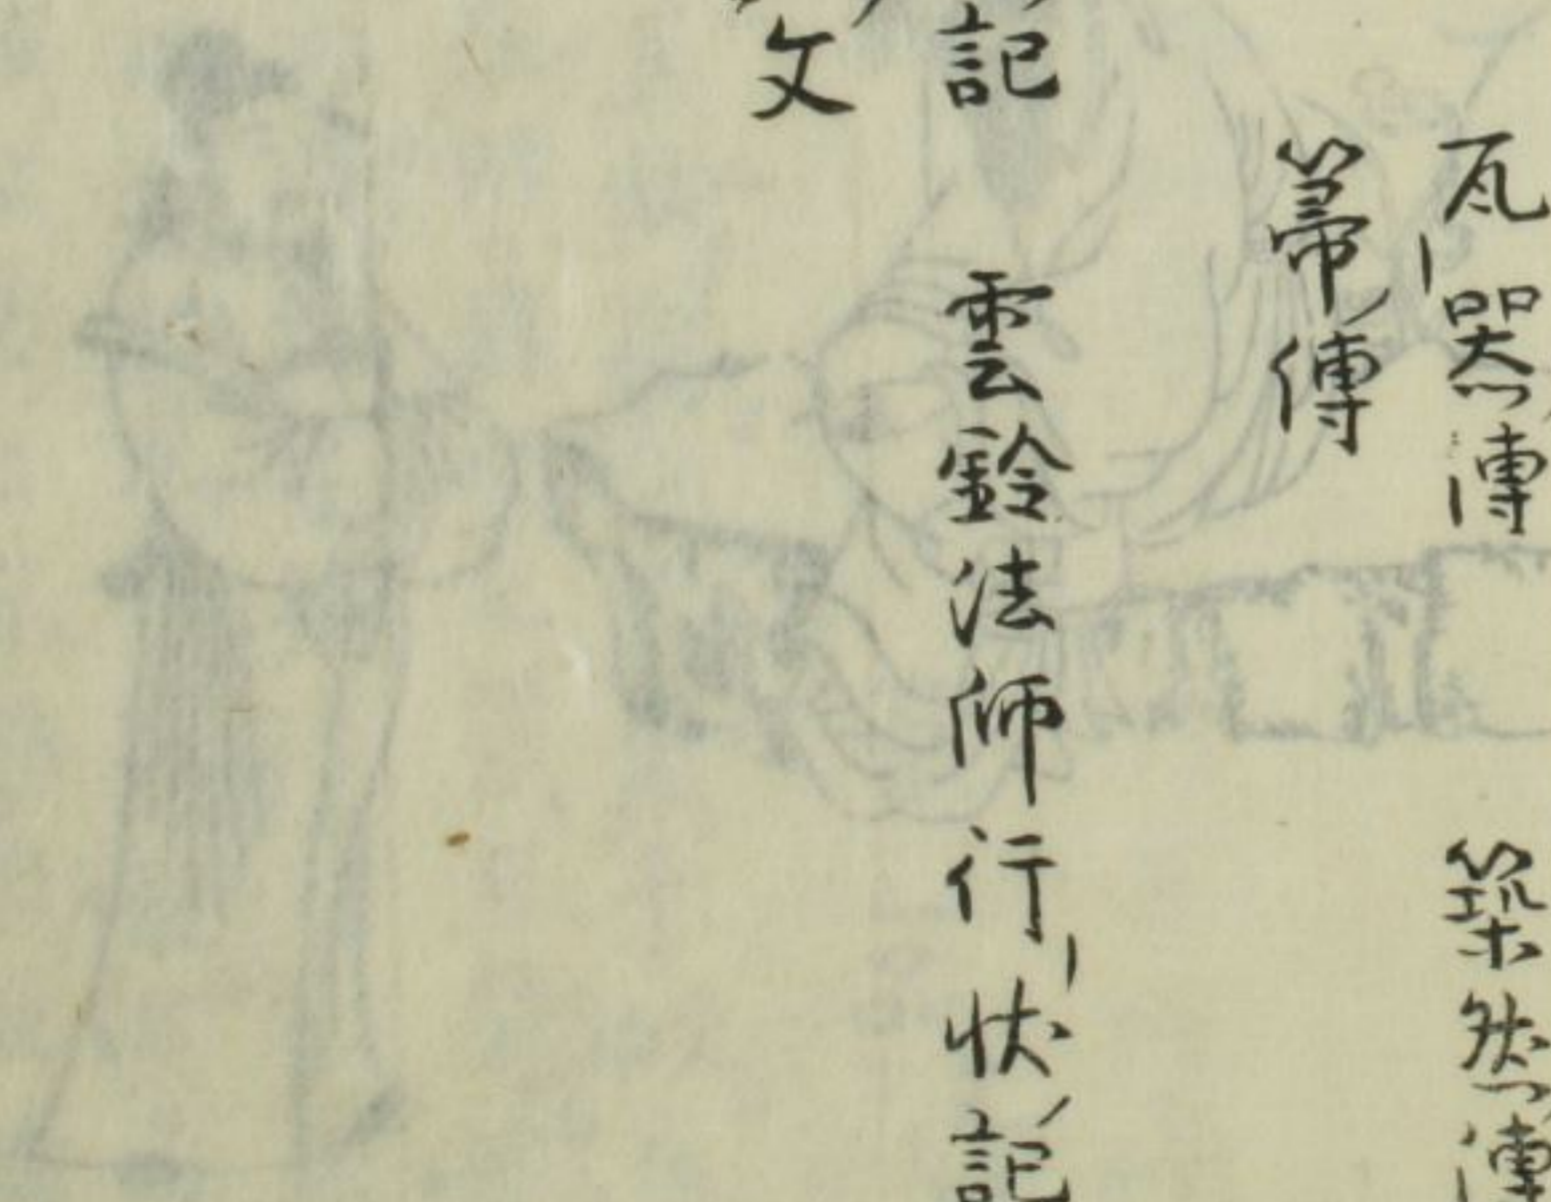 瓦器傳 築然傳
箒傳
記 雲鈴法師行状記
文